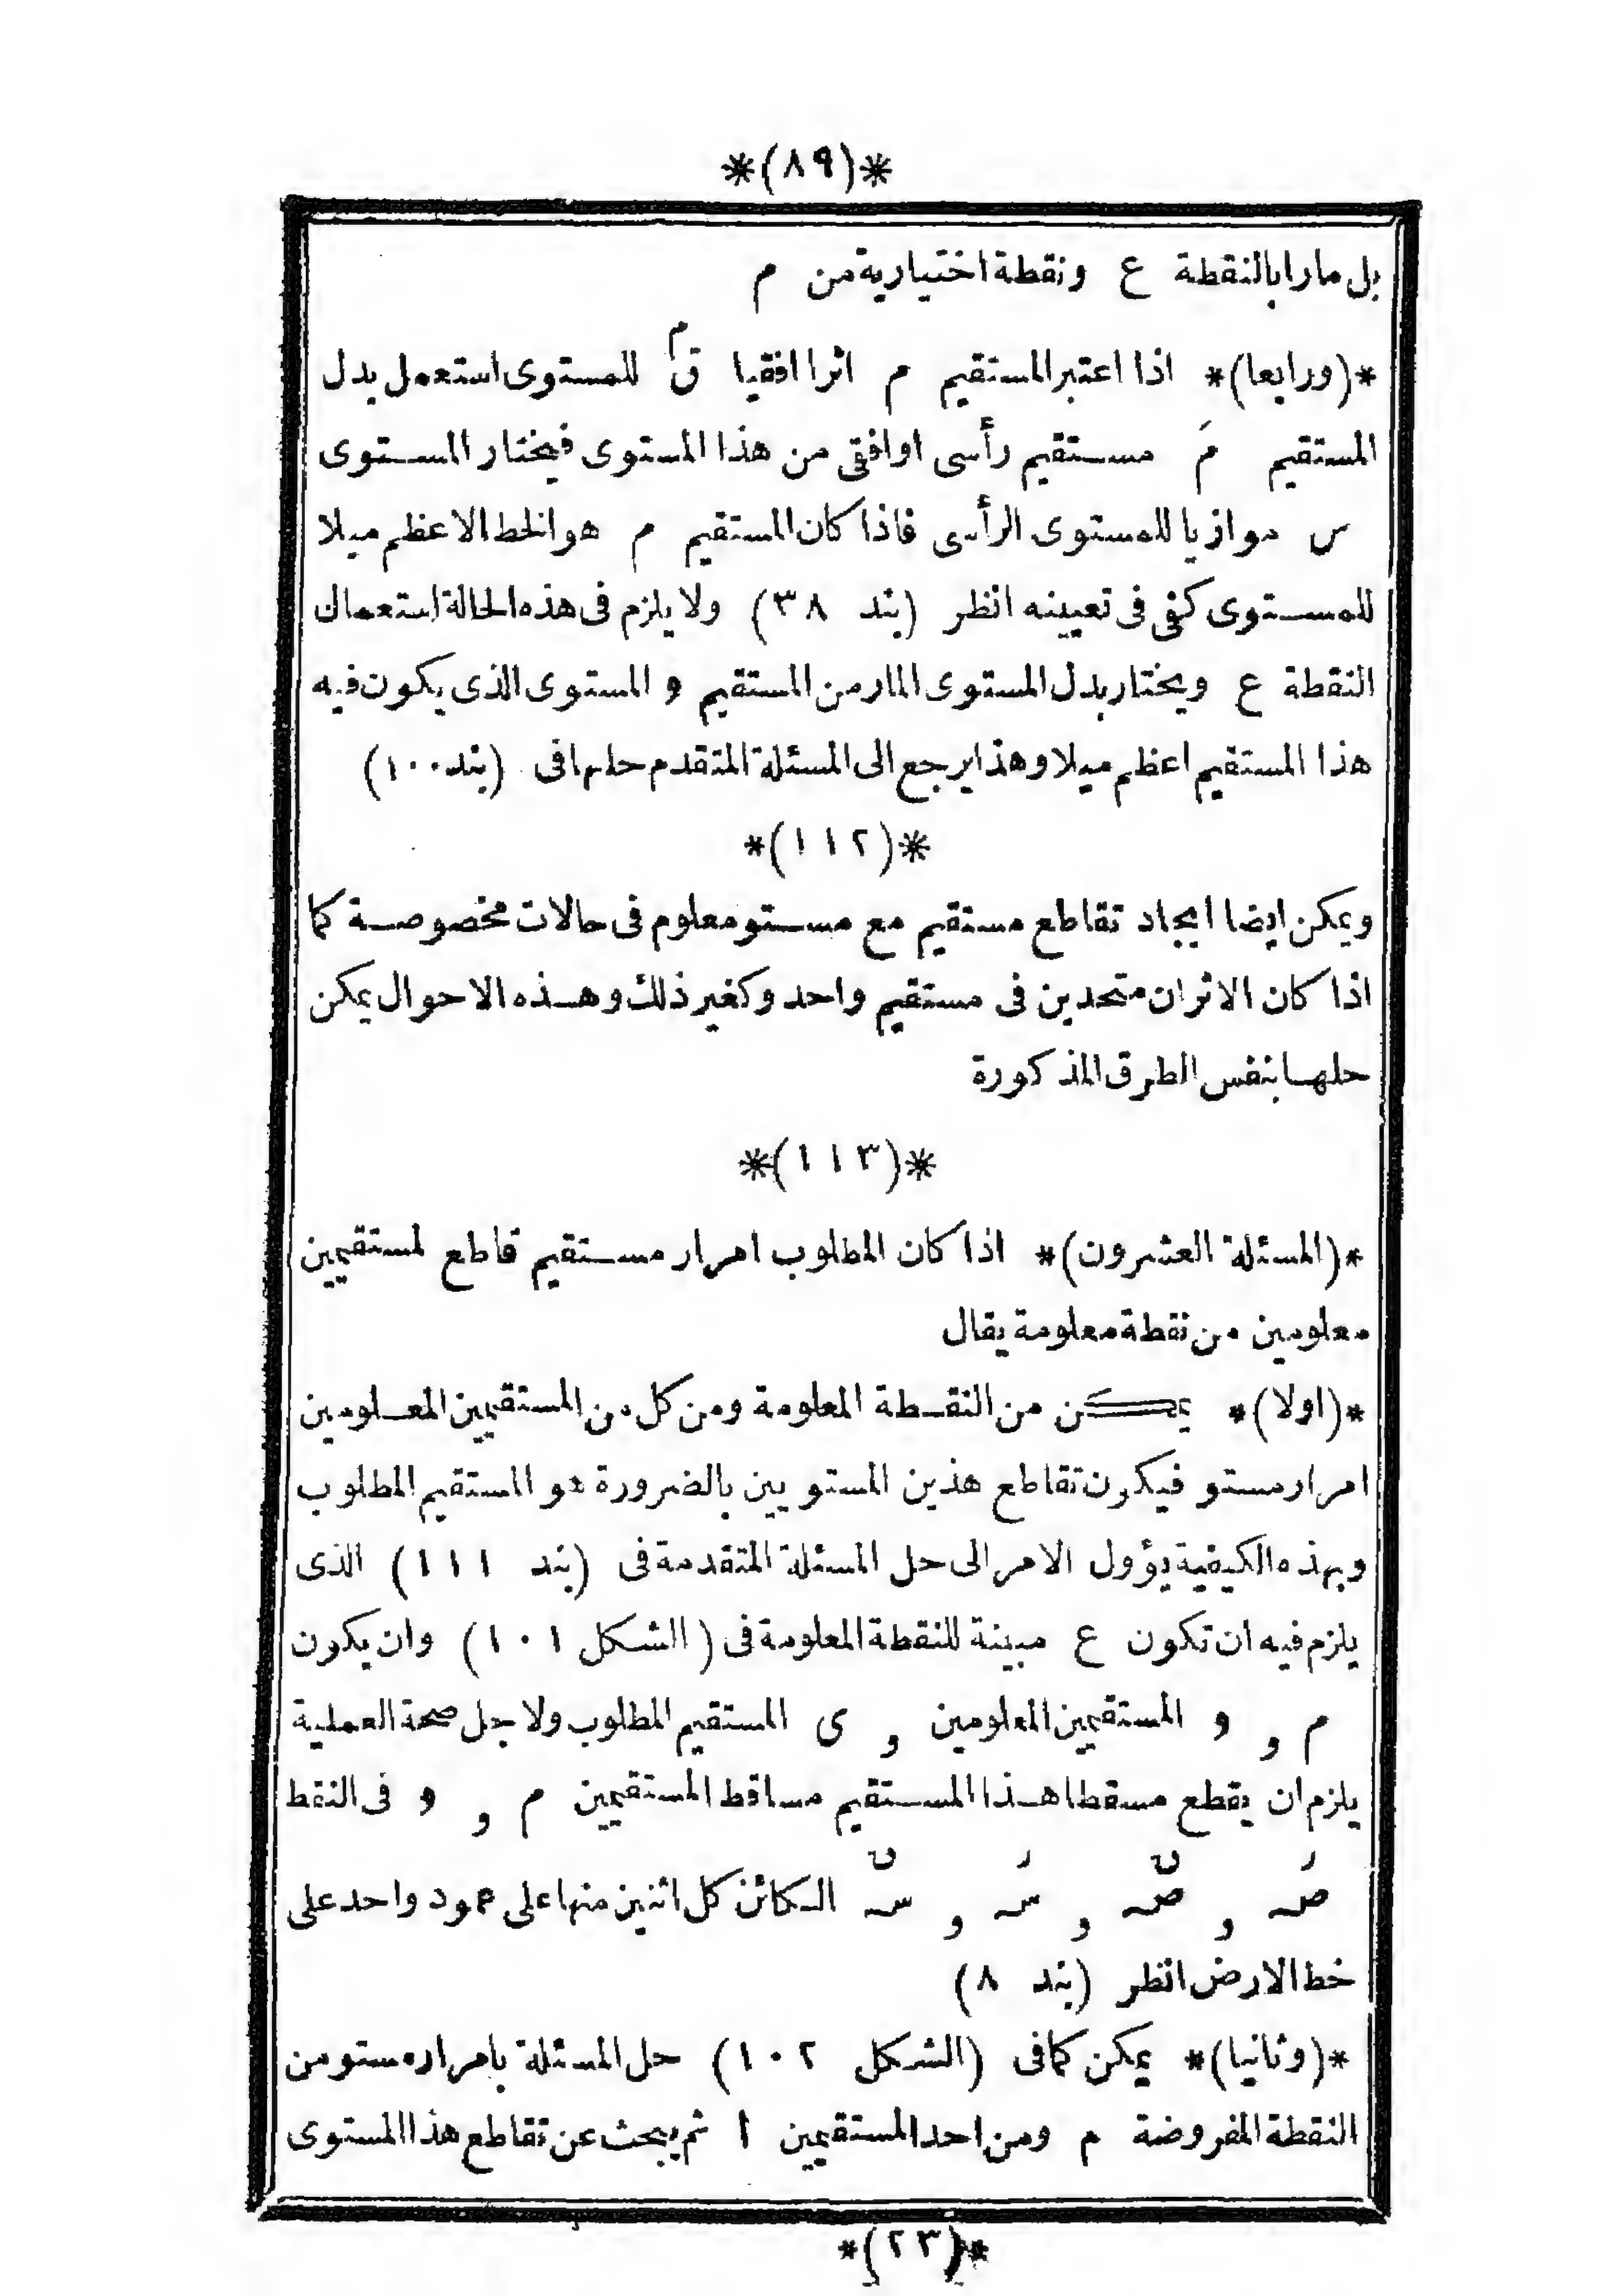 *(٨٩)*
بل مارا بالنقطة ع ونقطة اختيارية من م
*(ورابعا)* اذا اعتبر المستقيم م اثرا افقيا قَ م للمستوى استعمل بدل
المستقيم مَ مستقيم رأسى اوافقى من هذا المستوى فيختار المستوى
س موازيا للمستوى الرأسى فاذا كان المستقيم م هو الخط الاعظم ميلا
للمستوى كفى فى تعيينه انظر (بند ٣٨) ولا يلزم فى هذه الحالة استعمال
النقطة ع ويختار بدل المستوى المار من المستقيم و المستوى الذى يكون فيه
هذا المستقيم اعظم ميلا وهذا يرجع الى المسئلة المتقدم حلها فى (بند ١٠٠)
*(١١٢)*
ويمكن ايضا ايجاد تقاطع مستقيم مع مستو معلوم فى حالات مخصوصة كما
اذا كان الاثران متحدين فى مستقيم واحد وكغير ذلك وهذه الاحوال يمكن
حلها بنفس الطرق المذكورة
*(١١٣)*
*(المسئلة العشرون)* اذا كان المطلوب امرار مستقيم قاطع لمستقيمين
معلومين من نقطة معلومة يقال
*(اولا)* يمكن من النقطة المعلومة ومن كل من المستقيمين المعلومين
امرار مستو فيكون تقاطع هذين المستويين بالضرورة هو المستقيم المطلوب
وبهذه الكيفية يؤول الامر الى حل المسئلة المتقدمة فى (بند ١١١) الذى
يلزم فيه ان تكون ع مبينة للنقطة المعلومة فى (الشكل ١٠١) وان يكون
م و و المستقيمين المعلومين و ى المستقيم المطلوب ولاجل صحة العملية
يلزم ان يقطع مسقطا هذا المستقيم مساقط المستقيمين م و و فى النقط
صہ و صہ و سہ و سہ الكائن كل اثنين منها على عمود واحد على
خط الارض انظر (بند ٨)
*(وثانيا)* يمكن كما فى (الشكل ١٠٢) حل المسئلة بامرار مستو من
النقطة المفروضة م ومن احد المستقيمين ا ثم يبحث عن تقاطع هذا المستوى
*(٢٣)*